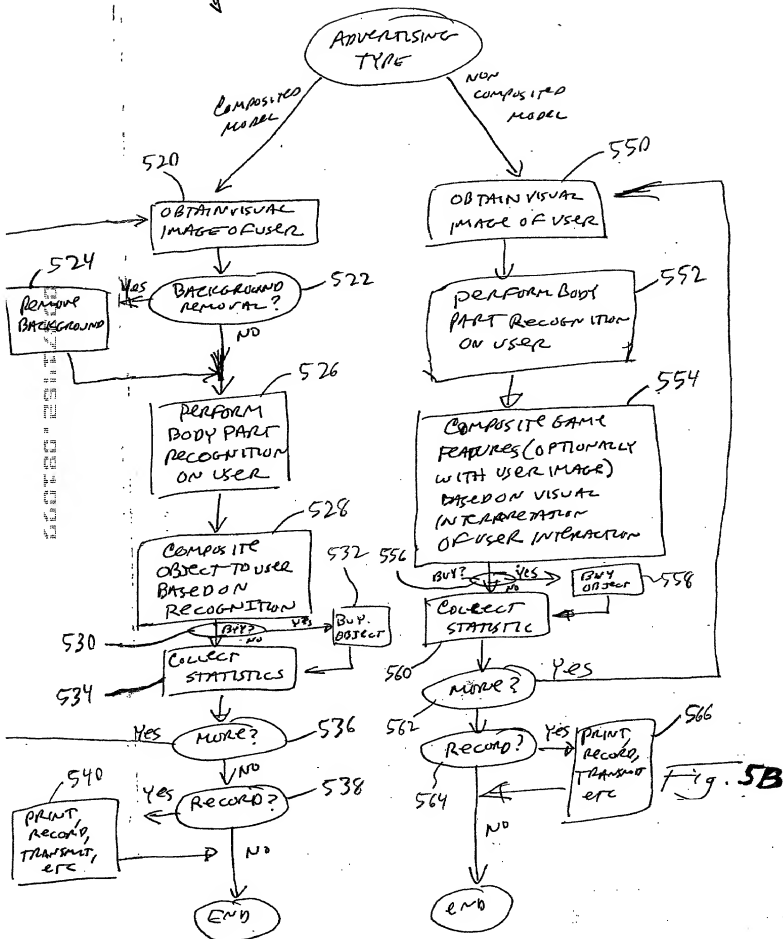 ADVERTISING
TYPE
COMPOSITED
MODEL
NON
COMPOSITED
MODEL
520
OBTAIN VISUAL
IMAGE OF USER
524
REMOVE
BACKGROUND
Yes
BACKGROUND
REMOVAL?
522
NO
526
PERFORM
BODY PART
RECOGNITION
ON USER
528
COMPOSITE
OBJECT TO USER
BASED ON
RECOGNITION
530
BUY?
Yes
532
BUY
OBJECT
NO
COLLECT
STATISTICS
534
Yes
MORE?
536
NO
540
Yes
RECORD?
538
PRINT,
RECORD,
TRANSMIT,
etc
NO
END
550
OBTAIN VISUAL
IMAGE OF USER
552
PERFORM BODY
PART RECOGNITION
ON USER
554
COMPOSITE GAME
FEATURES (OPTIONALLY
WITH USER IMAGE)
BASED ON VISUAL
INTERPRETATION
OF USER INTERACTION
556
BUY?
YES
BUY
OBJECT
558
NO
COLLECT
STATISTIC
560
MORE?
Yes
562
RECORD?
Yes
564
PRINT,
RECORD,
TRANSMIT
etc
566
NO
END
Fig. 5B